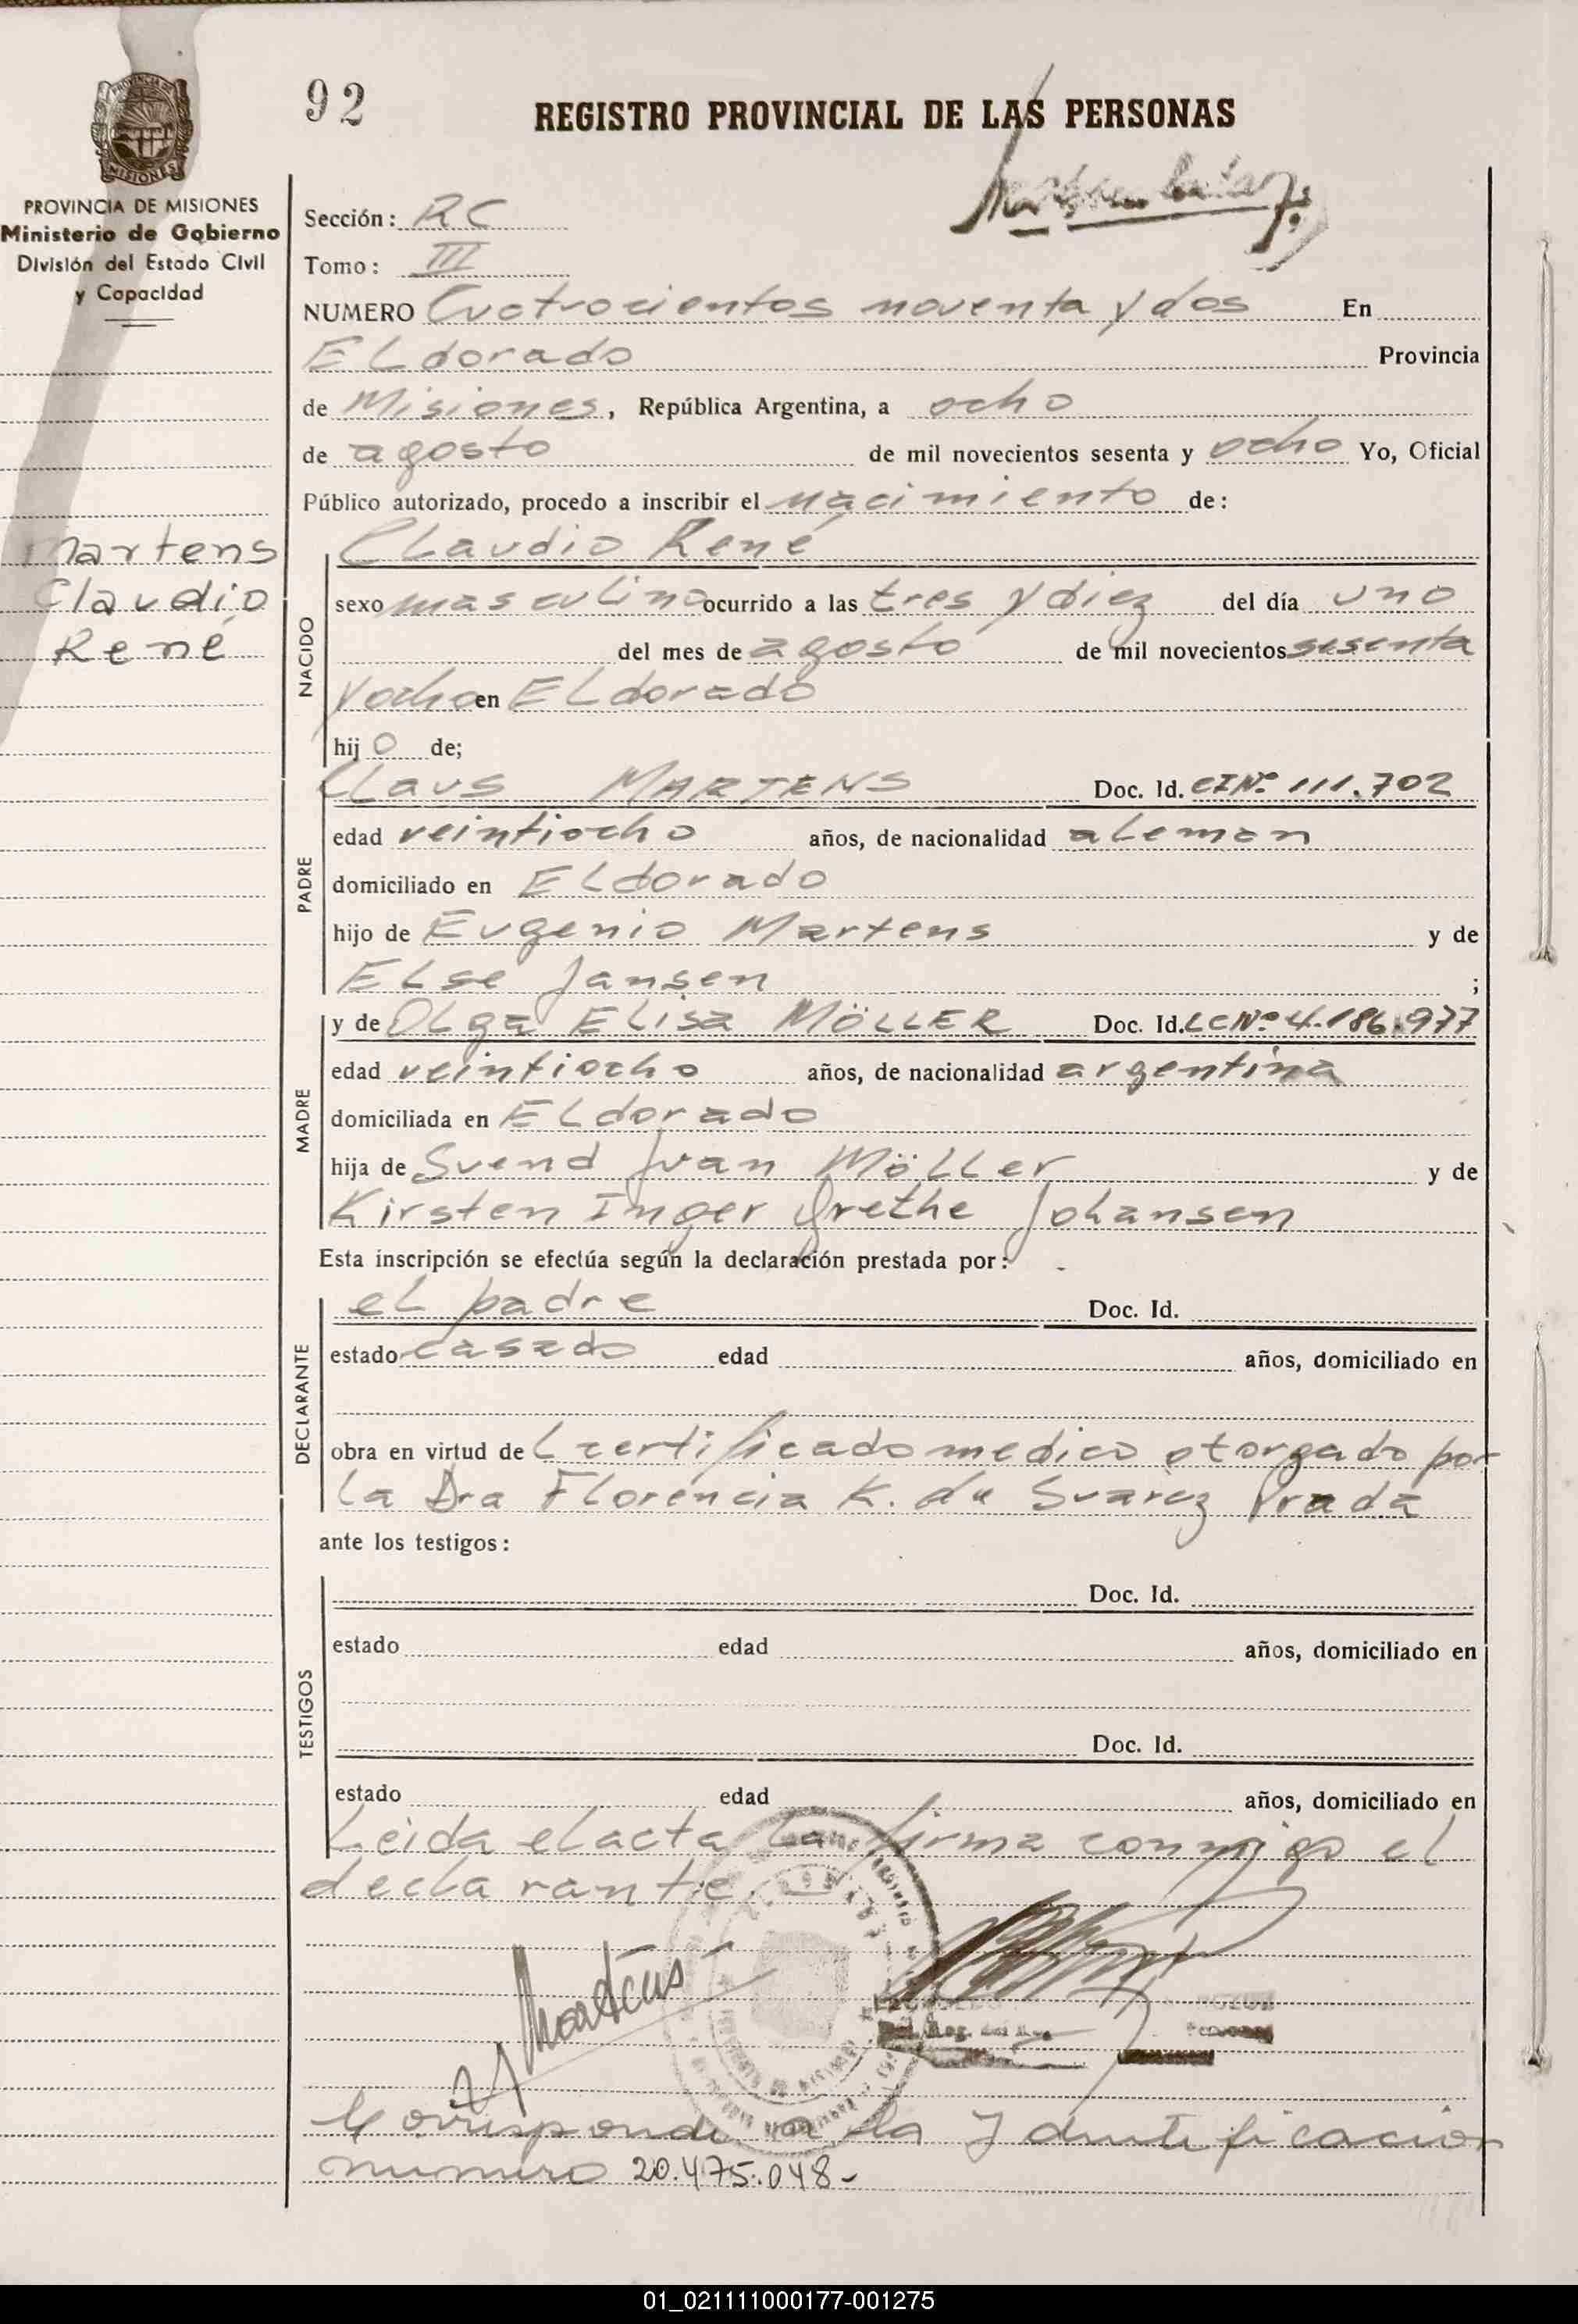 92
REGISTRO PROVINCIAL DE LAS PERSONAS
PROVINCIA DE MISIONES
Ministerio de Gobierno
División del Estado Civil
y Capacidad
Martens
Claudio
René
Sección: RC
Tomo: III
NUMERO Cuatrocientos noventa y dos En
ELdorado Provincia
de Misiones, República Argentina, a ocho
de agosto de mil novecientos sesenta y ocho Yo, Oficial
Público autorizado, procedo a inscribir el nacimiento de:
NACIDO
Claudio René
sexo masculino ocurrido a las tres y diez del día uno
del mes de agosto de mil novecientos sesenta
y ocho en ELdorado
hijo de;
PADRE
Claus MARTENS Doc. Id. CI Nº 111.702
edad veintiocho años, de nacionalidad aleman
domiciliado en ELdorado
hijo de Eugenio Martens y de
Else Jansen ;
MADRE
y de Olga Elisa MÖLLER Doc. Id. LC Nº 4.186.977
edad veintiocho años, de nacionalidad argentina
domiciliada en ELdorado
hija de Svend Ivan Möller y de
Kirsten Inger Grethe Johansen
Esta inscripción se efectúa según la declaración prestada por:
DECLARANTE
el padre Doc. Id.
estado casado edad años, domiciliado en
obra en virtud de L certificado medico otorgado por
la Dra Florencia K. de Suarez Prada
ante los testigos:
TESTIGOS
Doc. Id.
estado edad años, domiciliado en
Doc. Id.
estado edad años, domiciliado en
Leida el acta la firma conmigo el
declarante.
Martens
Corresponde a la Identificacion
numero 20.475.048-
01_021111000177-001275